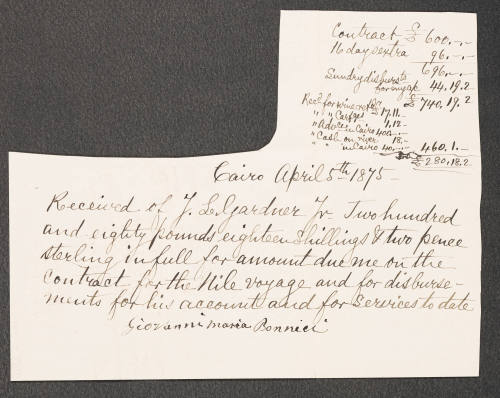 Contract £ 600.-.-
16 days extra 96.-.-
696.-.-
Sundry disbursts
for myse 44.19.2
£ 740.19.2
Recd for wine &c £ 17.11.-
" " Carfges 4.12.-
" Advces in Cairo 400.-.-
" Cash on river 18.-
" " in Cairo 40.-.- 460.1.-
£ 280.18.2
Cairo April 5th 1875-
Received of J. L. Gardner Jr Two hundred
and eighty pounds eighteen Shillings & two pence
sterling in full for amount due me on the
Contract for the Nile voyage and for disburse-
ments for his account and for Services to date
Giovanni Maria Bonnici